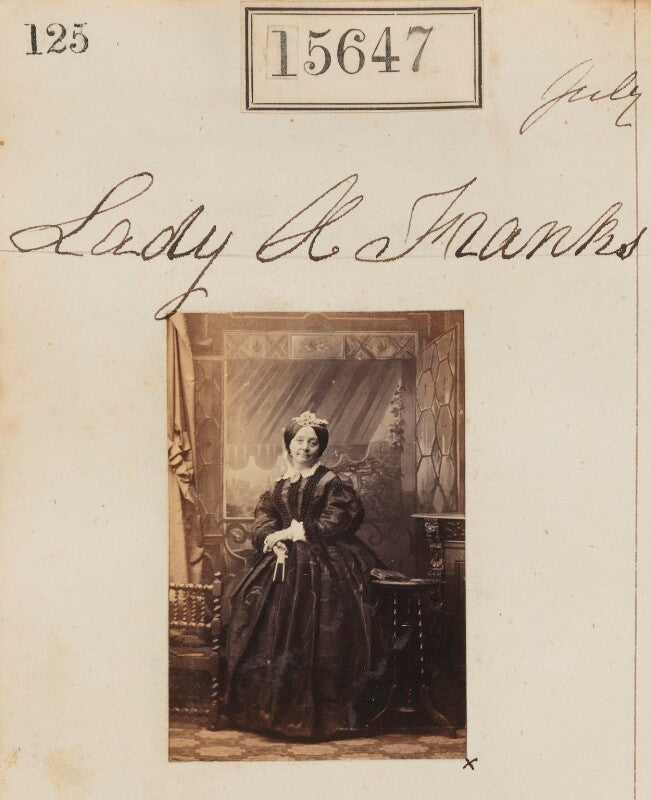 125
15647
July
Lady H Franks
x